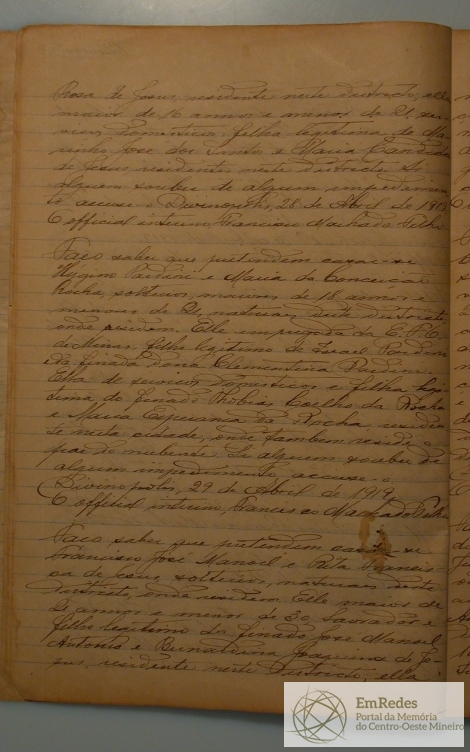 Rosa de Jesus, residente neste districto, ella
maior de 16 annos e menor de 21, ser-
viços domesticos, filha legitima de
José dos Santos e Maria Candida
de Jesus residentes neste districto. Se
alguem souber de algum impedimen-
to accuse-o. Divinopolis, 28 de Abril de 1919
O official interino, Francisco Machado Filho
Faço saber que pretendem casar-se
Hygino e Maria da Conceição
Rocha, solteiros, maiores de 18 annos e
menores de 21, naturaes deste districto
onde residem. Elle empregado da E.
de Minas, filho legitimo de Israel
e da finada dona Clementina
Ella de serviços domesticos e filha legi-
tima do finado Tobias Coelho da Rocha
e Maria Esperança da Rocha, residen-
te nesta cidade, onde tambem reside o
pae do nubente. Se alguem souber de
algum impedimento, accuse-o.
Divinopolis, 29 de Abril de 1919
O official interino, Francisco Machado Filho
Faço saber que pretendem casar-se
Francisco José Manoel e Rita Francis-
ca de Jesus, solteiros, naturaes deste
districto, onde residem. Elle maior de
annos e menor de 30, lavrador e
filho legitimo do finado José Manoel
Antonio e Bernardina Joaquina de Je-
sus, residente neste districto, ella
EmRedes
Portal da Memória
do Centro-Oeste Mineiro